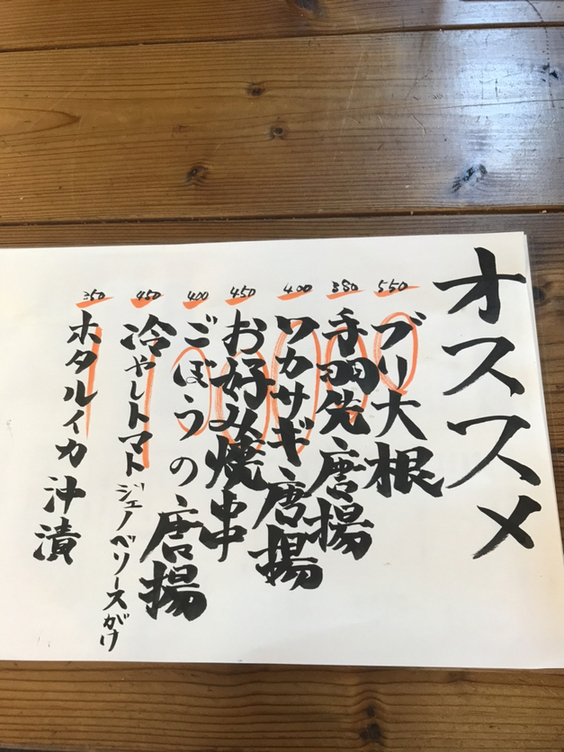 オススメ
550
ブリ大根
380
手羽先唐揚
400
ワカサギ唐揚
450
お好み焼串
400
ごぼうの唐揚
450
冷やしトマト ジェノベソースがけ
350
ホタルイカ沖漬